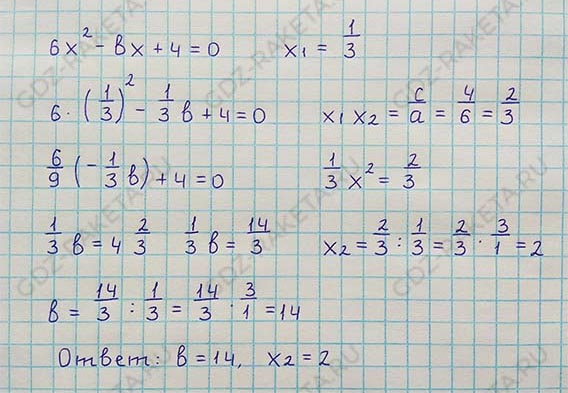 6x² - вx + 4 = 0    x₁ = 1/3
6 · (1/3)² - 1/3 в + 4 = 0    x₁ x₂ = c/a = 4/6 = 2/3
6/9 (- 1/3 в) + 4 = 0    1/3 x² = 2/3
1/3 в = 4 2/3    1/3 в = 14/3    x₂ = 2/3 : 1/3 = 2/3 · 3/1 = 2
в = 14/3 : 1/3 = 14/3 · 3/1 = 14
Ответ: в = 14, x₂ = 2
GDZ-RAKETA.RU
GDZ-RAKETA.RU
GDZ-RAKETA.RU
GDZ-RAKETA.RU